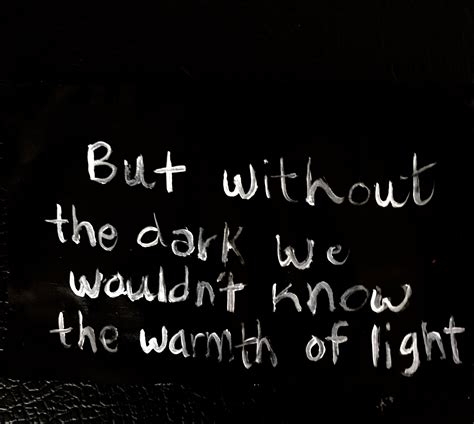 But without
the dark we
wouldn't know
the warmth of light